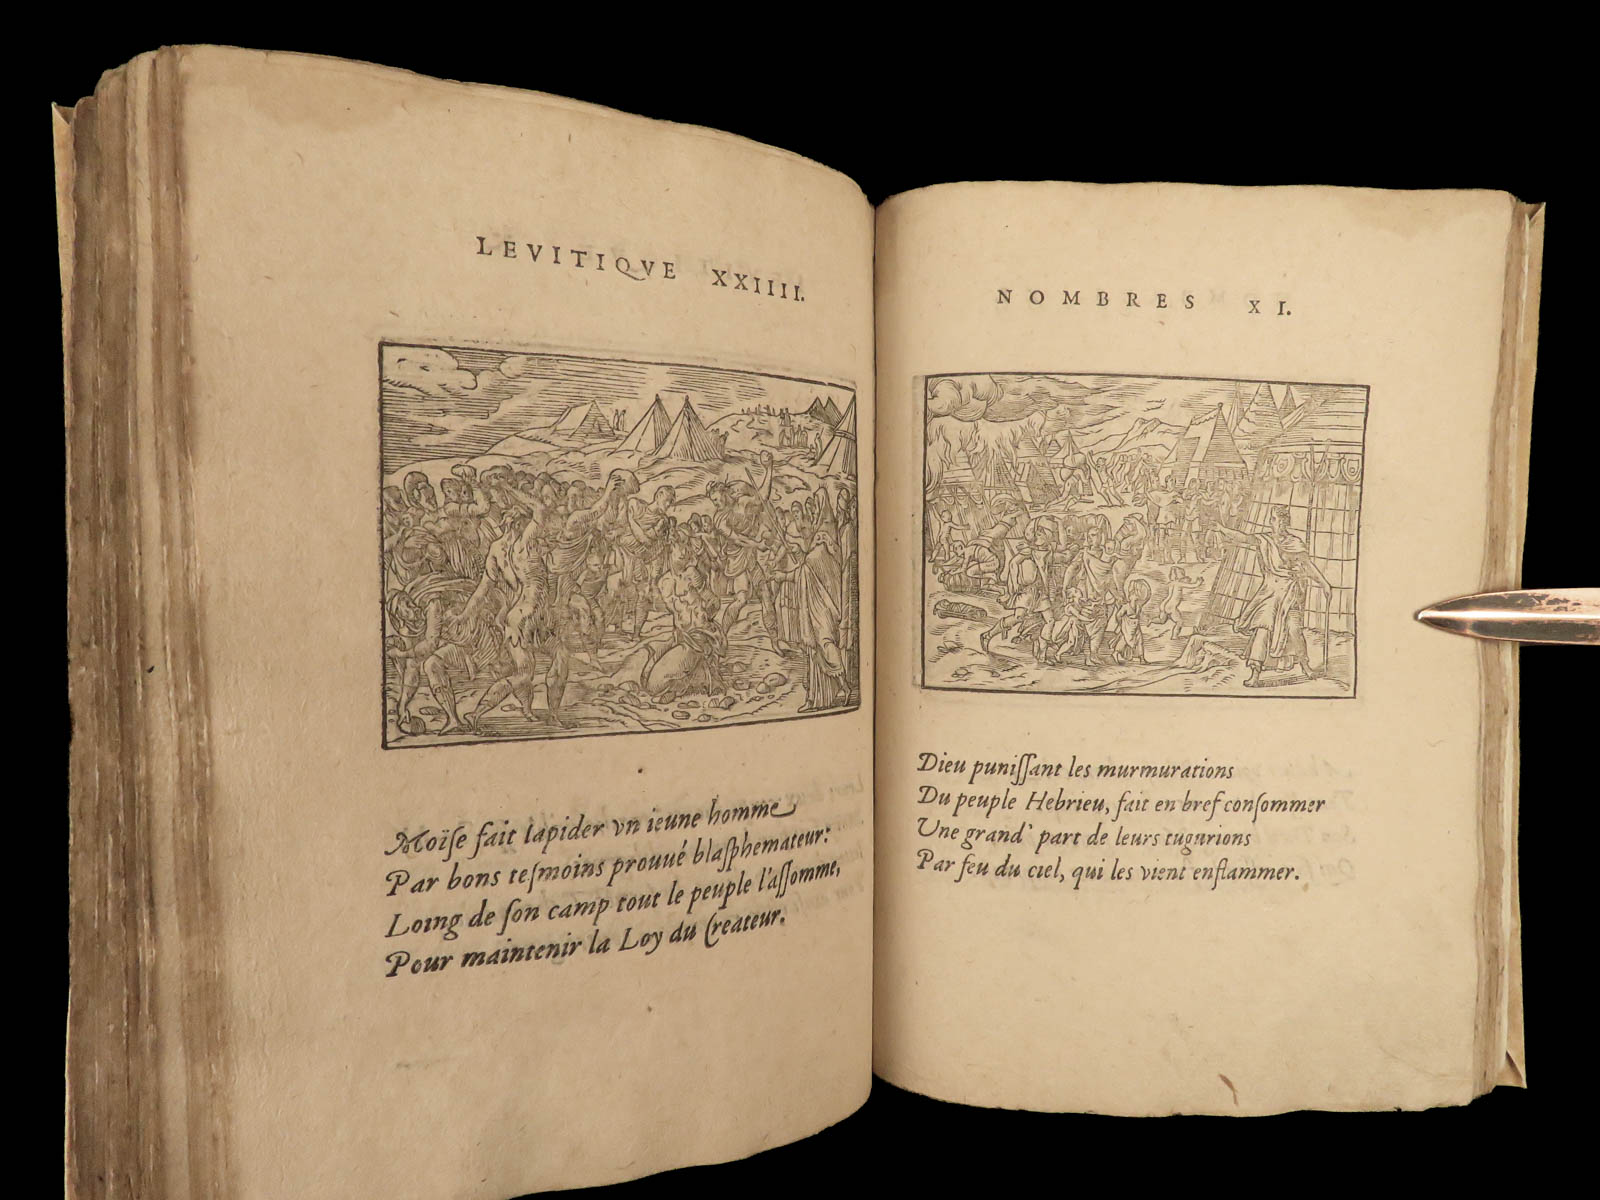 LEVITIQVE XXIIII.
Moïse fait lapider vn ieune homme
Par bons teſmoins prouué blaſphemateur:
Loing de ſon camp tout le peuple l'aſſomme,
Pour maintenir la Loy du Createur.
NOMBRES XI.
Dieu puniſſant les murmurations
Du peuple Hebrieu, fait en bref conſommer
Vne grand' part de leurs tugurions
Par feu du ciel, qui les vient enflammer.